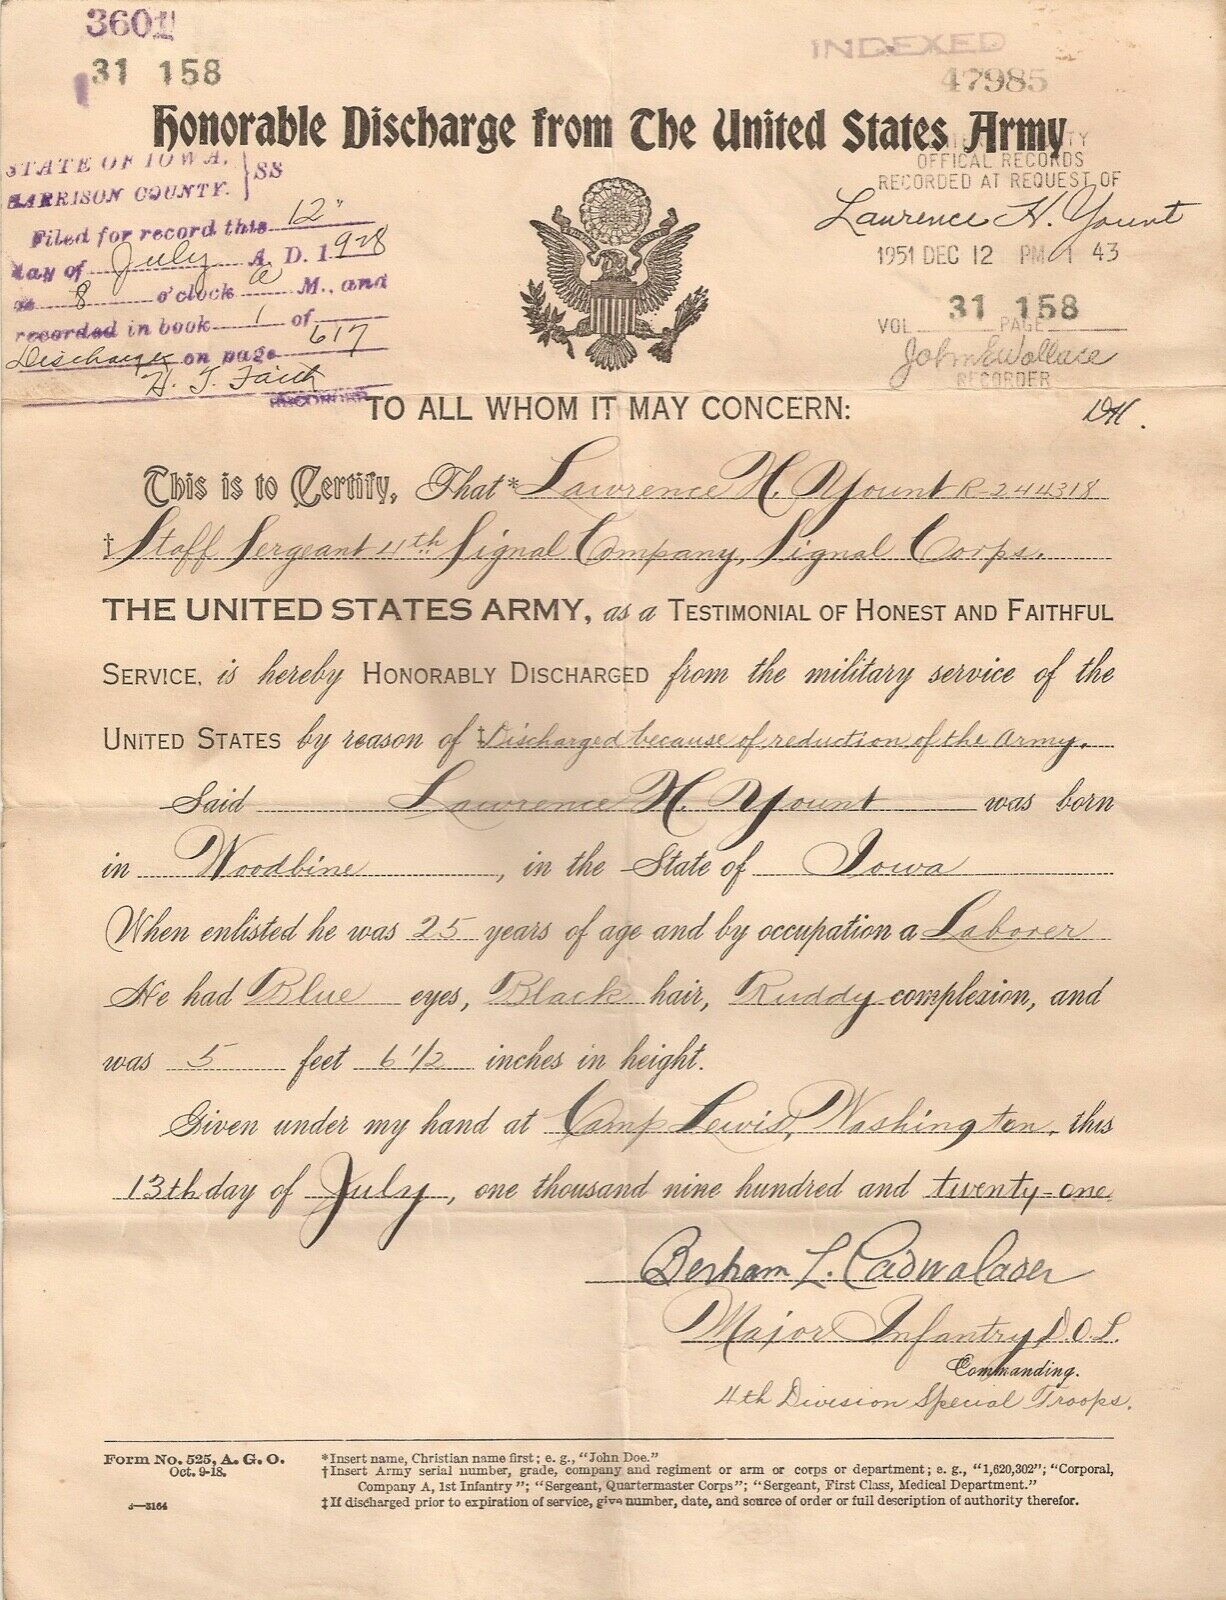 3601
31 158
INDEXED
47985
Honorable Discharge from The United States Army
STATE OF IOWA, } SS
HARRISON COUNTY.
Filed for record this 12"
day of July A. D. 1928
at 8 o'clock a M., and
recorded in book 1 of
Discharges on page 617
H. T. Faith
RECORDER
OFFICAL RECORDS
RECORDED AT REQUEST OF
Lawrence H. Yount
1951 DEC 12 PM 1 43
VOL 31 PAGE 158
John E Wallace
RECORDER
TO ALL WHOM IT MAY CONCERN:
DH.
This is to Certify, That * Lawrence H. Yount R-244318
† Staff Sergeant 4th Signal Company, Signal Corps.
THE UNITED STATES ARMY, as a TESTIMONIAL OF HONEST AND FAITHFUL
SERVICE, is hereby HONORABLY DISCHARGED from the military service of the
UNITED STATES by reason of ‡ Discharged because of reduction of the Army.
Said Lawrence H. Yount was born
in Woodbine, in the State of Iowa
When enlisted he was 25 years of age and by occupation a Laborer
He had Blue eyes, Black hair, Ruddy complexion, and
was 5 feet 6 1/2 inches in height.
Given under my hand at Camp Lewis, Washington, this
13th day of July, one thousand nine hundred and twenty-one
L. Cadwalader
Major Infantry D.O.L.
Commanding.
4th Division Special Troops.
Form No. 525, A. G. O.
Oct. 9-18.
3—3164
*Insert name, Christian name first; e. g., "John Doe."
†Insert Army serial number, grade, company and regiment or arm or corps or department; e. g., "1,620,302"; "Corporal,
Company A, 1st Infantry"; "Sergeant, Quartermaster Corps"; "Sergeant, First Class, Medical Department."
‡If discharged prior to expiration of service, give number, date, and source of order or full description of authority therefor.